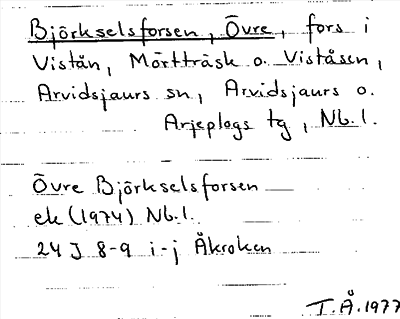 Björkselsforsen, Övre, fors i
Vistån, Mörtträsk o. Viståsen,
Arvidsjaurs sn, Arvidsjaurs o.
Arjeplogs tg, Nb.l.
Övre Björkselsforsen
ek (1974) Nb.l.
24 J 8-9 i-j Åkroken
T.Å.1977